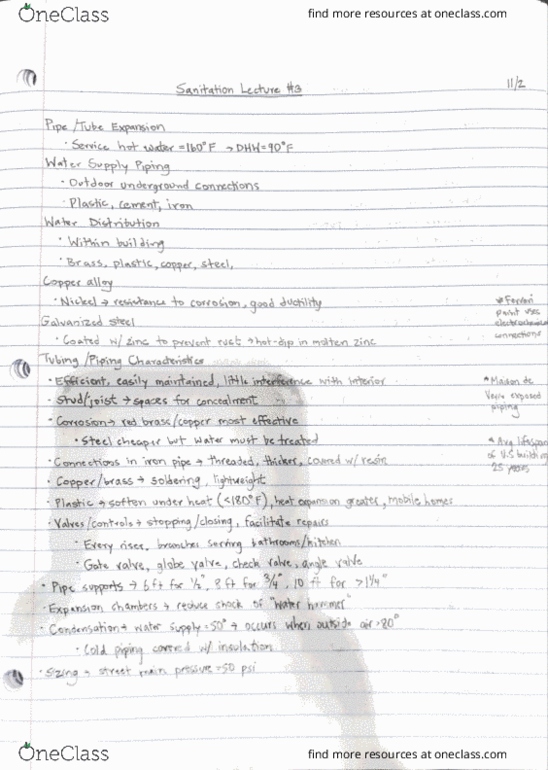 OneClass
find more resources at oneclass.com
Sanitation Lecture #3
11/2
Pipe/Tube Expansion
· Service hot water = 160°F → DHW = 90°F
Water Supply Piping
· Outdoor underground connections
· Plastic, cement, iron
Water Distribution
· Within building
· Brass, plastic, copper, steel,
Copper alloy
· Nickel → resistance to corrosion, good ductility
* Ferrari
paint uses
Galvanized steel
connections
· Coated w/ zinc to prevent rust → hot-dip in molten zinc
Tubing/Piping Characteristics
· Efficient, easily maintained, little interference with interior
* Maison de
Verre exposed
piping
· Stud/joist → spaces for concealment
· Corrosion → red brass/copper most effective
· Steel cheaper but water must be treated
* Avg lifespan
of U.S building
25 years
· Connections in iron pipe → threaded, thicker, covered w/ resin
· Copper/brass → soldering, lightweight
· Plastic → soften under heat (<180°F), heat expansion greater, mobile homes
· Valves/controls → stopping/closing, facilitate repairs
· Every riser, branches serving bathrooms/kitchen
· Gate valve, globe valve, check valve, angle valve
· Pipe supports → 6 ft for 1/2", 8 ft for 3/4", 10 ft for >1 1/4"
· Expansion chambers → reduce shock of "water hammer"
· Condensation → water supply = 50° → occurs when outside air >80°
· Cold piping covered w/ insulation
· Sizing → street main pressure = 50 psi
OneClass
find more resources at oneclass.com